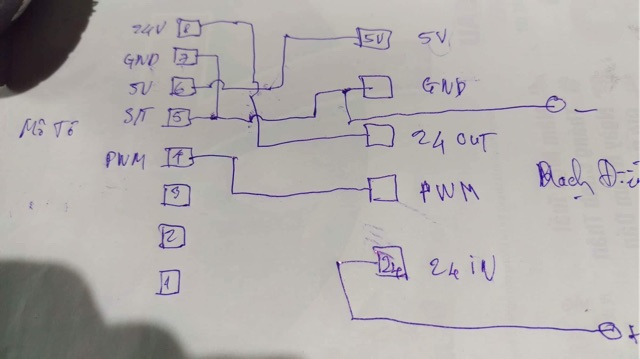 24V 8
GND 7
5V 6
S/T 5
PWM 4
3
2
1
Mô Tơ
5V 5V
GND
24 OUT
PWM
24 24 iN
-
+
Mạch